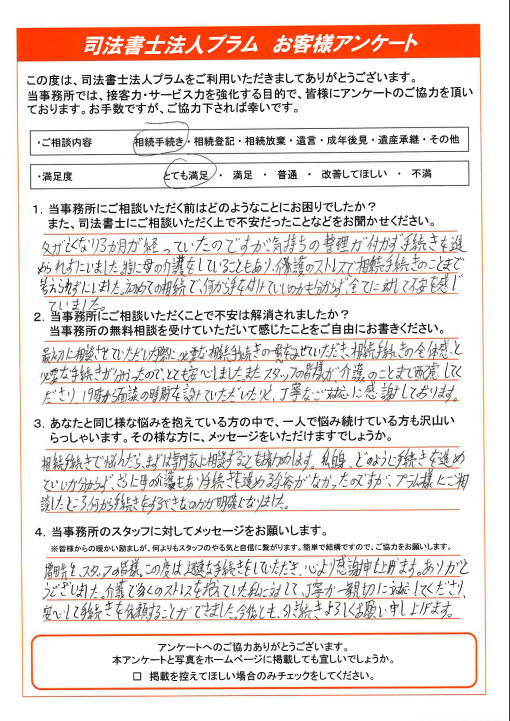 司法書士法人プラム お客様アンケート
この度は、司法書士法人プラムをご利用いただきましてありがとうございます。
当事務所では、接客力・サービス力を強化する目的で、皆様にアンケートのご協力を頂い
ております。お手数ですが、ご協力下されば幸いです。
・ご相談内容 相続手続き・相続登記・相続放棄・遺言・成年後見・遺産承継・その他
・満足度 とても満足 ・ 満足 ・ 普通 ・ 改善してほしい ・ 不満
1. 当事務所にご相談いただく前はどのようなことにお困りでしたか？
また、司法書士にご相談いただく上で不安だったことなどをお聞かせください。
父が亡くなり3か月が経っていたのですが、気持ちの整理が付かず手続きを進
められずにいました。特に母の介護をしていることもあり、介護のストレスで相続手続きのことまで
考えられずにいました。初めての相続で、何から手を付けていいのかも分からず、全てに対して不安を感じ
ていました。
2. 当事務所にご相談いただくことで不安は解消されましたか？
当事務所の無料相談を受けていただいて感じたことをご自由にお書きください。
最初に相談させていただいた際に必要な相続手続きの一覧をみせていただき、相続手続きの全体感と
必要な手続きが分かったので、とても安心しました。またスタッフの皆様が介護のことまで配慮してく
ださり、19時から面談の時間を設けていただいたり、丁寧なご対応に感謝しております。
3. あなたと同じ様な悩みを抱えている方の中で、一人で悩み続けている方も沢山い
らっしゃいます。その様な方に、メッセージをいただけますでしょうか。
相続手続きで悩んだら、まずは専門家に相談することをお勧めします。私自身、どのように手続きを進め
ていいか分からず、さらに母の介護もあり手続きを進める余裕がなかったのですが、プラム様にご相
談したところ何から手続きをするべきなのかが明確になりました。
4. 当事務所のスタッフに対してメッセージをお願いします。
※皆様からの暖かい励ましが、何よりもスタッフのやる気と自信に繋がります。簡単で結構ですので、ご協力をお願いします。
スタッフの皆様、この度は迅速な手続きをしていただき、心より感謝申し上げます。ありがと
うございました。介護で多くのストレスを抱えていた私に対して、丁寧かつ親切に対応してくださり、
安心して手続きを依頼することができました。今後とも、引き続きよろしくお願い申し上げます。
アンケートへのご協力ありがとうございます。
本アンケートと写真をホームページに掲載しても宜しいでしょうか。
□ 掲載を控えてほしい場合のみチェックをしてください。